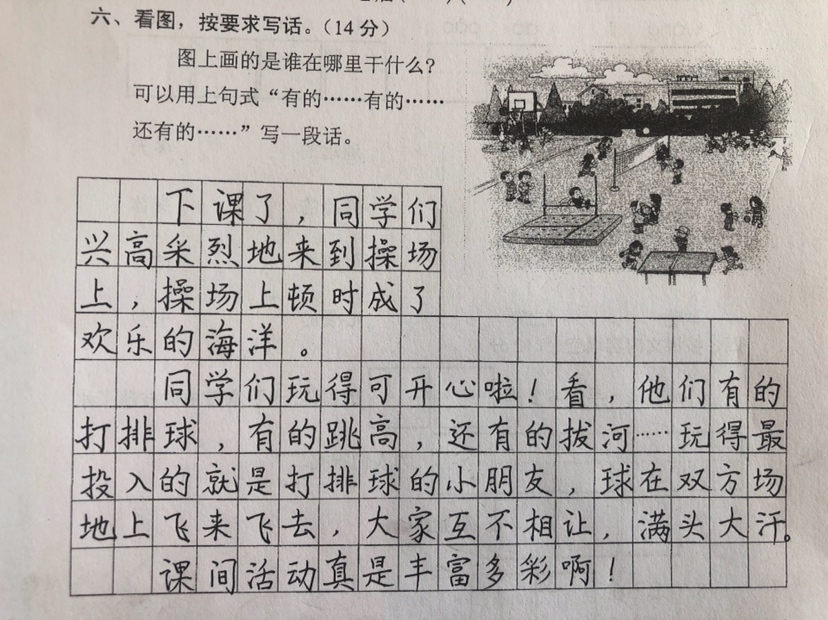 六、看图，按要求写话。(14分)
图上画的是谁在哪里干什么？
可以用上句式“有的……有的……
还有的……”写一段话。
下课了，同学们
兴高采烈地来到操场
上，操场上顿时成了
欢乐的海洋。
同学们玩得可开心啦！看，他们有的
打排球，有的跳高，还有的拔河……玩得最
投入的就是打排球的小朋友，球在双方场
地上飞来飞去，大家互不相让，满头大汗。
课间活动真是丰富多彩啊！